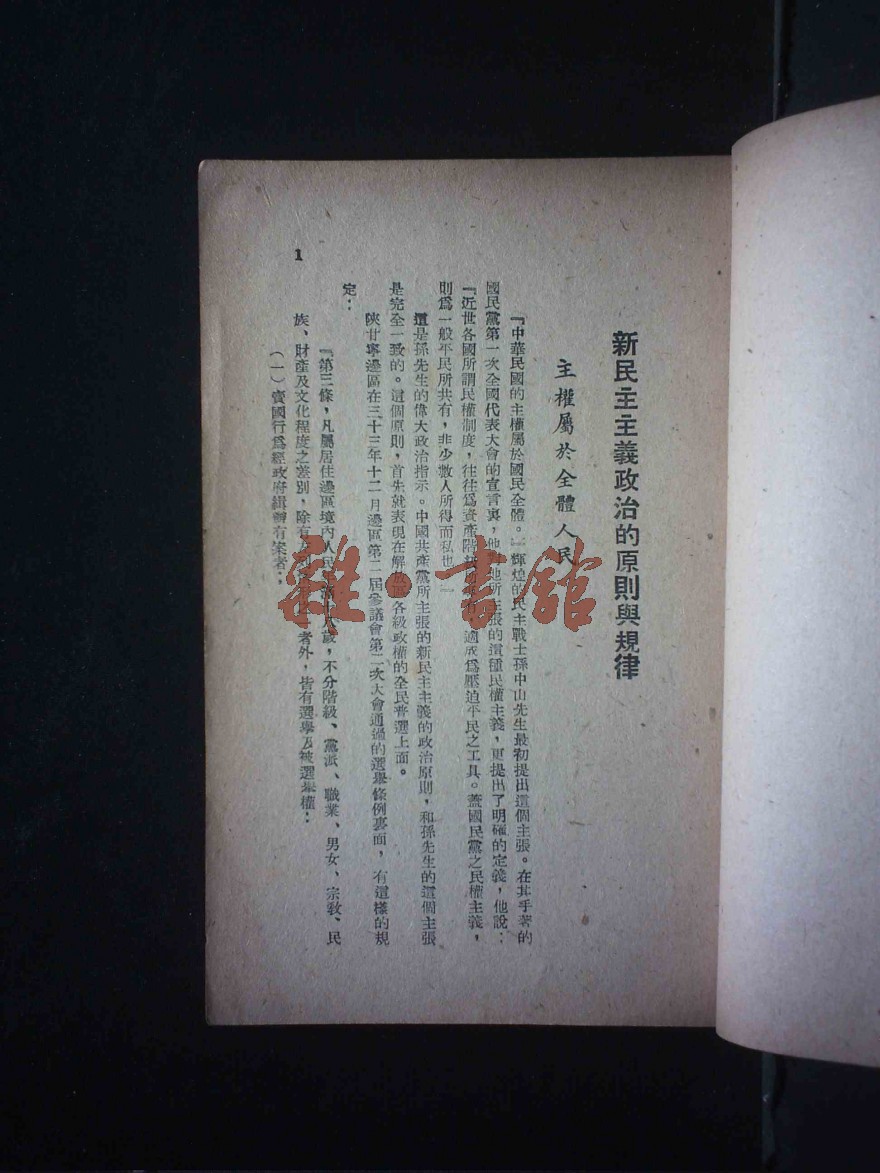 新民主主義政治的原則與規律
主權屬於全體人民
『中華民國的主權屬於國民全體。』輝煌的民主戰士孫中山先生最初提出這個主張。在其手著的
國民黨第一次全國代表大會的宣言裏,他對他所主張的這種民權主義,更提出了明確的定義,他說:
『近世各國所謂民權制度,往往爲資產階級所 適成爲壓迫平民之工具。蓋國民黨之民權主義,
則爲一般平民所共有,非少數人所得而私也。』
這是孫先生的偉大政治指示。中國共產黨所主張的新民主主義的政治原則,和孫先生的這個主張
是完全一致的。這個原則,首先就表現在解放區各級政權的全民普選上面。
陝甘寧邊區在三十三年十二月邊區第二屆參議會第二次大會通過的選舉條例裏面,有這樣的規
定:
『第三條,凡屬居住邊區境內人民 歲,不分階級、黨派、職業、男女、宗敎、民
族、財產及文化程度之差別,除有 者外,皆有選舉及被選舉權:
(一)賣國行爲經政府緝辦有案者;
1
雜·書館